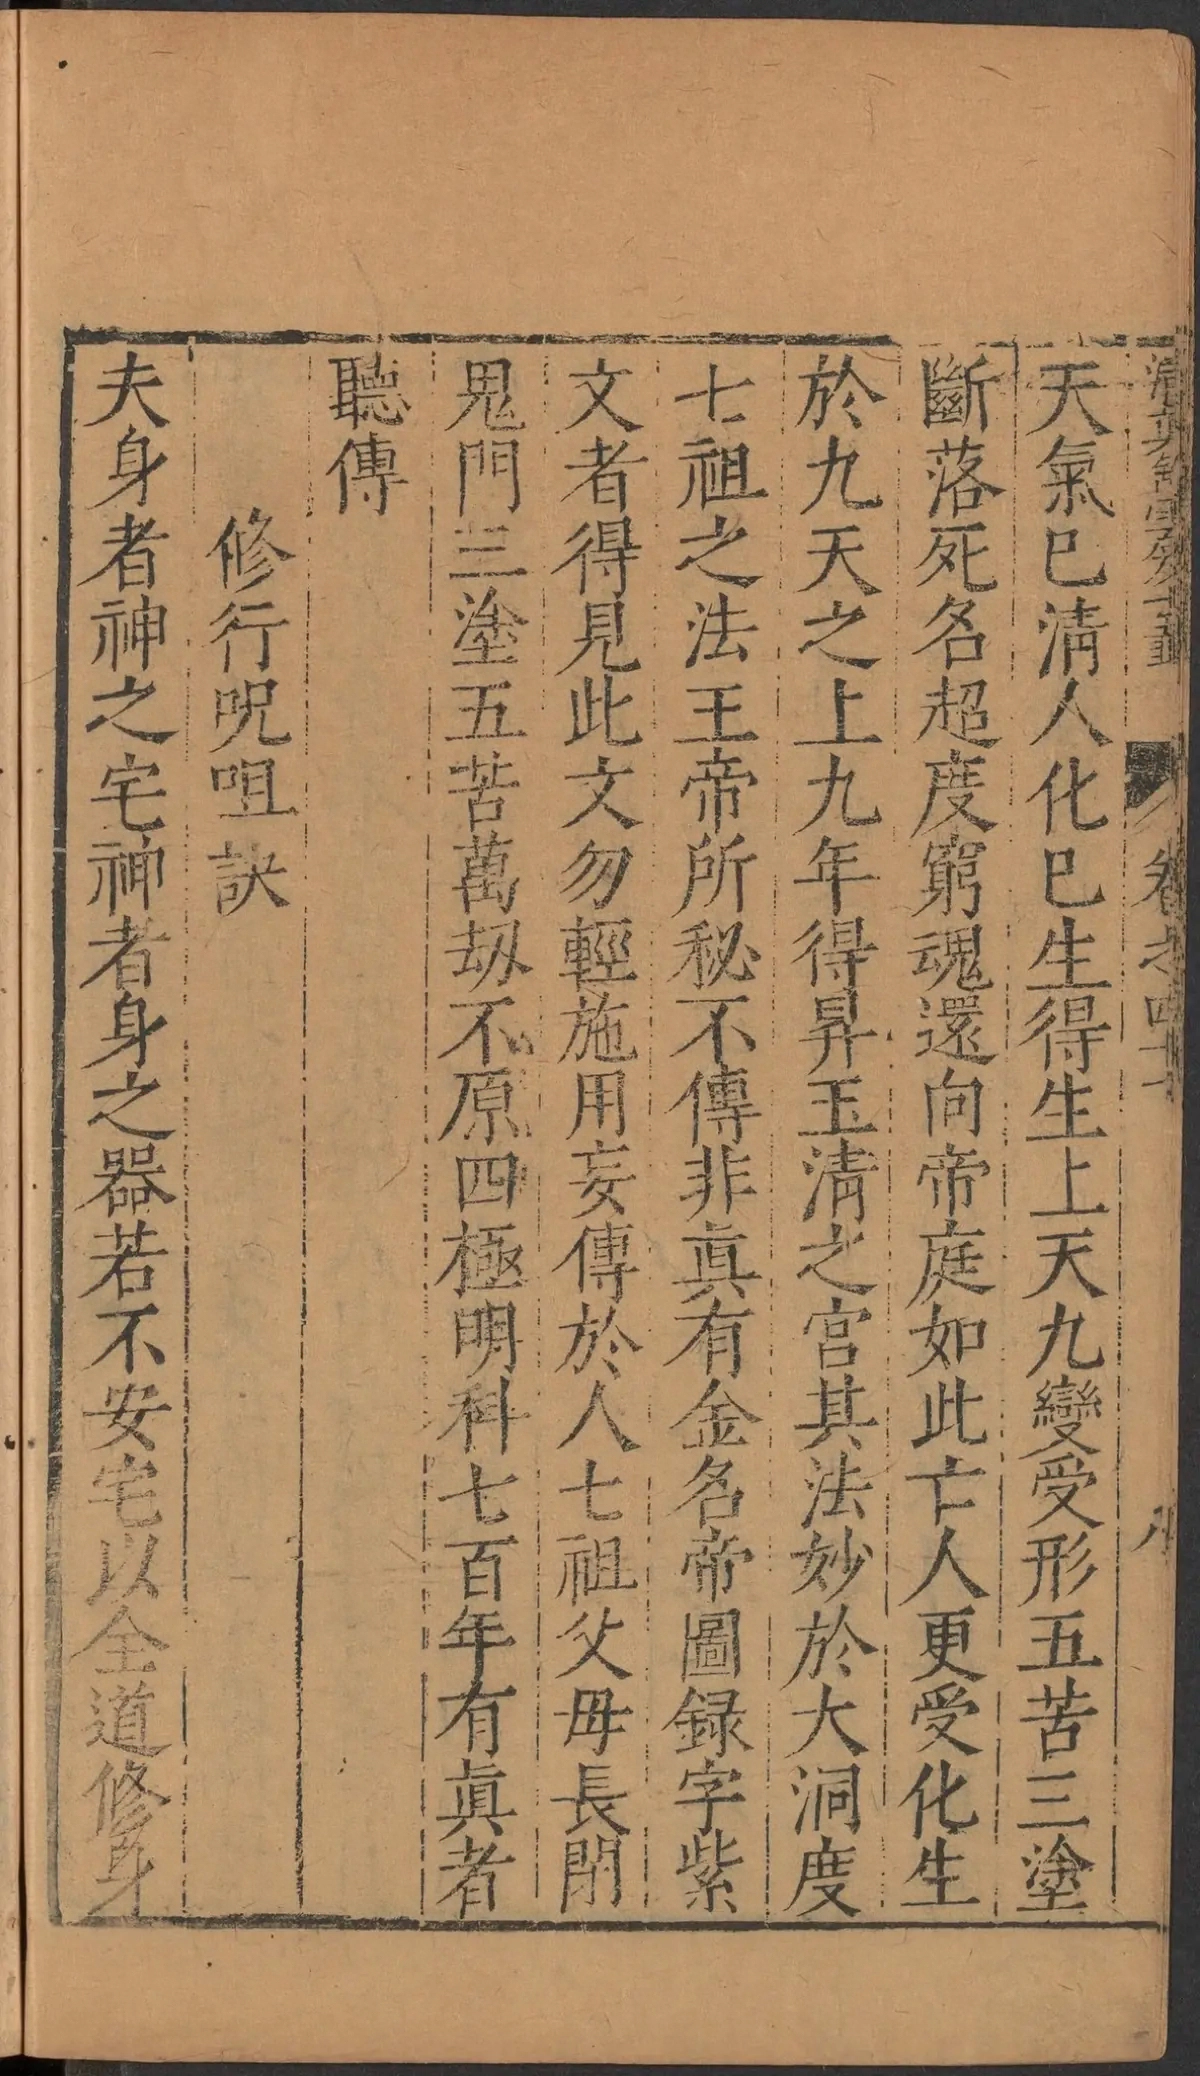 卷之四十
天氣巳清人化巳生得生上天九變受形五苦三塗
斷落死名超度窮魂還向帝庭如此亡人更受化生
於九天之上九年得昇玉清之宮其法妙於大洞度
七祖之法王帝所秘不傳非眞有金名帝圖録字紫
文者得見此文勿輕施用妄傳於人七祖父毋長閉
鬼門三塗五苦萬劫不原四極明科七百年有眞者
聽傳
修行呪咀訣
夫身者神之宅神者身之器若不安宅以全道修身